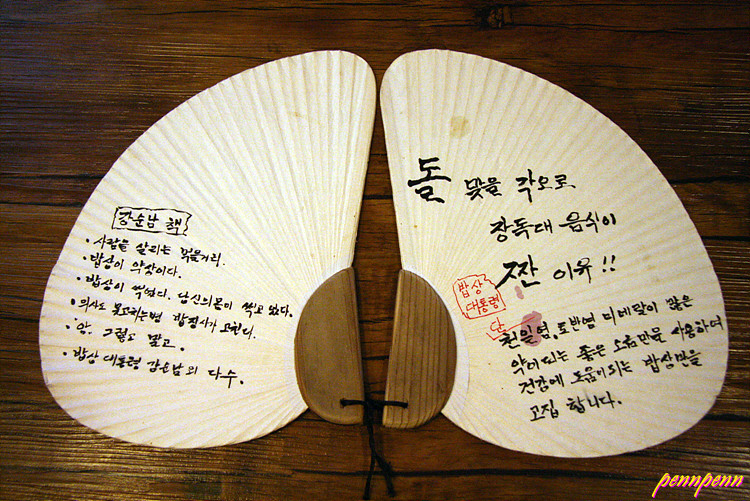 강순남 책
· 사람을 살리는 먹을거리.
· 밥상이 약상이다.
· 밥상이 썩었다. 당신의 몸이 썩고 있다.
· 의사도 못고치는병 밥장사가 고친다.
· 암. 그럴도 말고.
· 밥상 대통령 강순남외 다수.
돌 맞을 각오로
장독대 음식이
짠 이유!!
밥상
대통령
단
천일염, 토반염 미네랄이 많은
약이 되는 좋은 소금만을 사용하여
건강에 도움이 되는 밥상만을
고집 합니다.
pennpenn